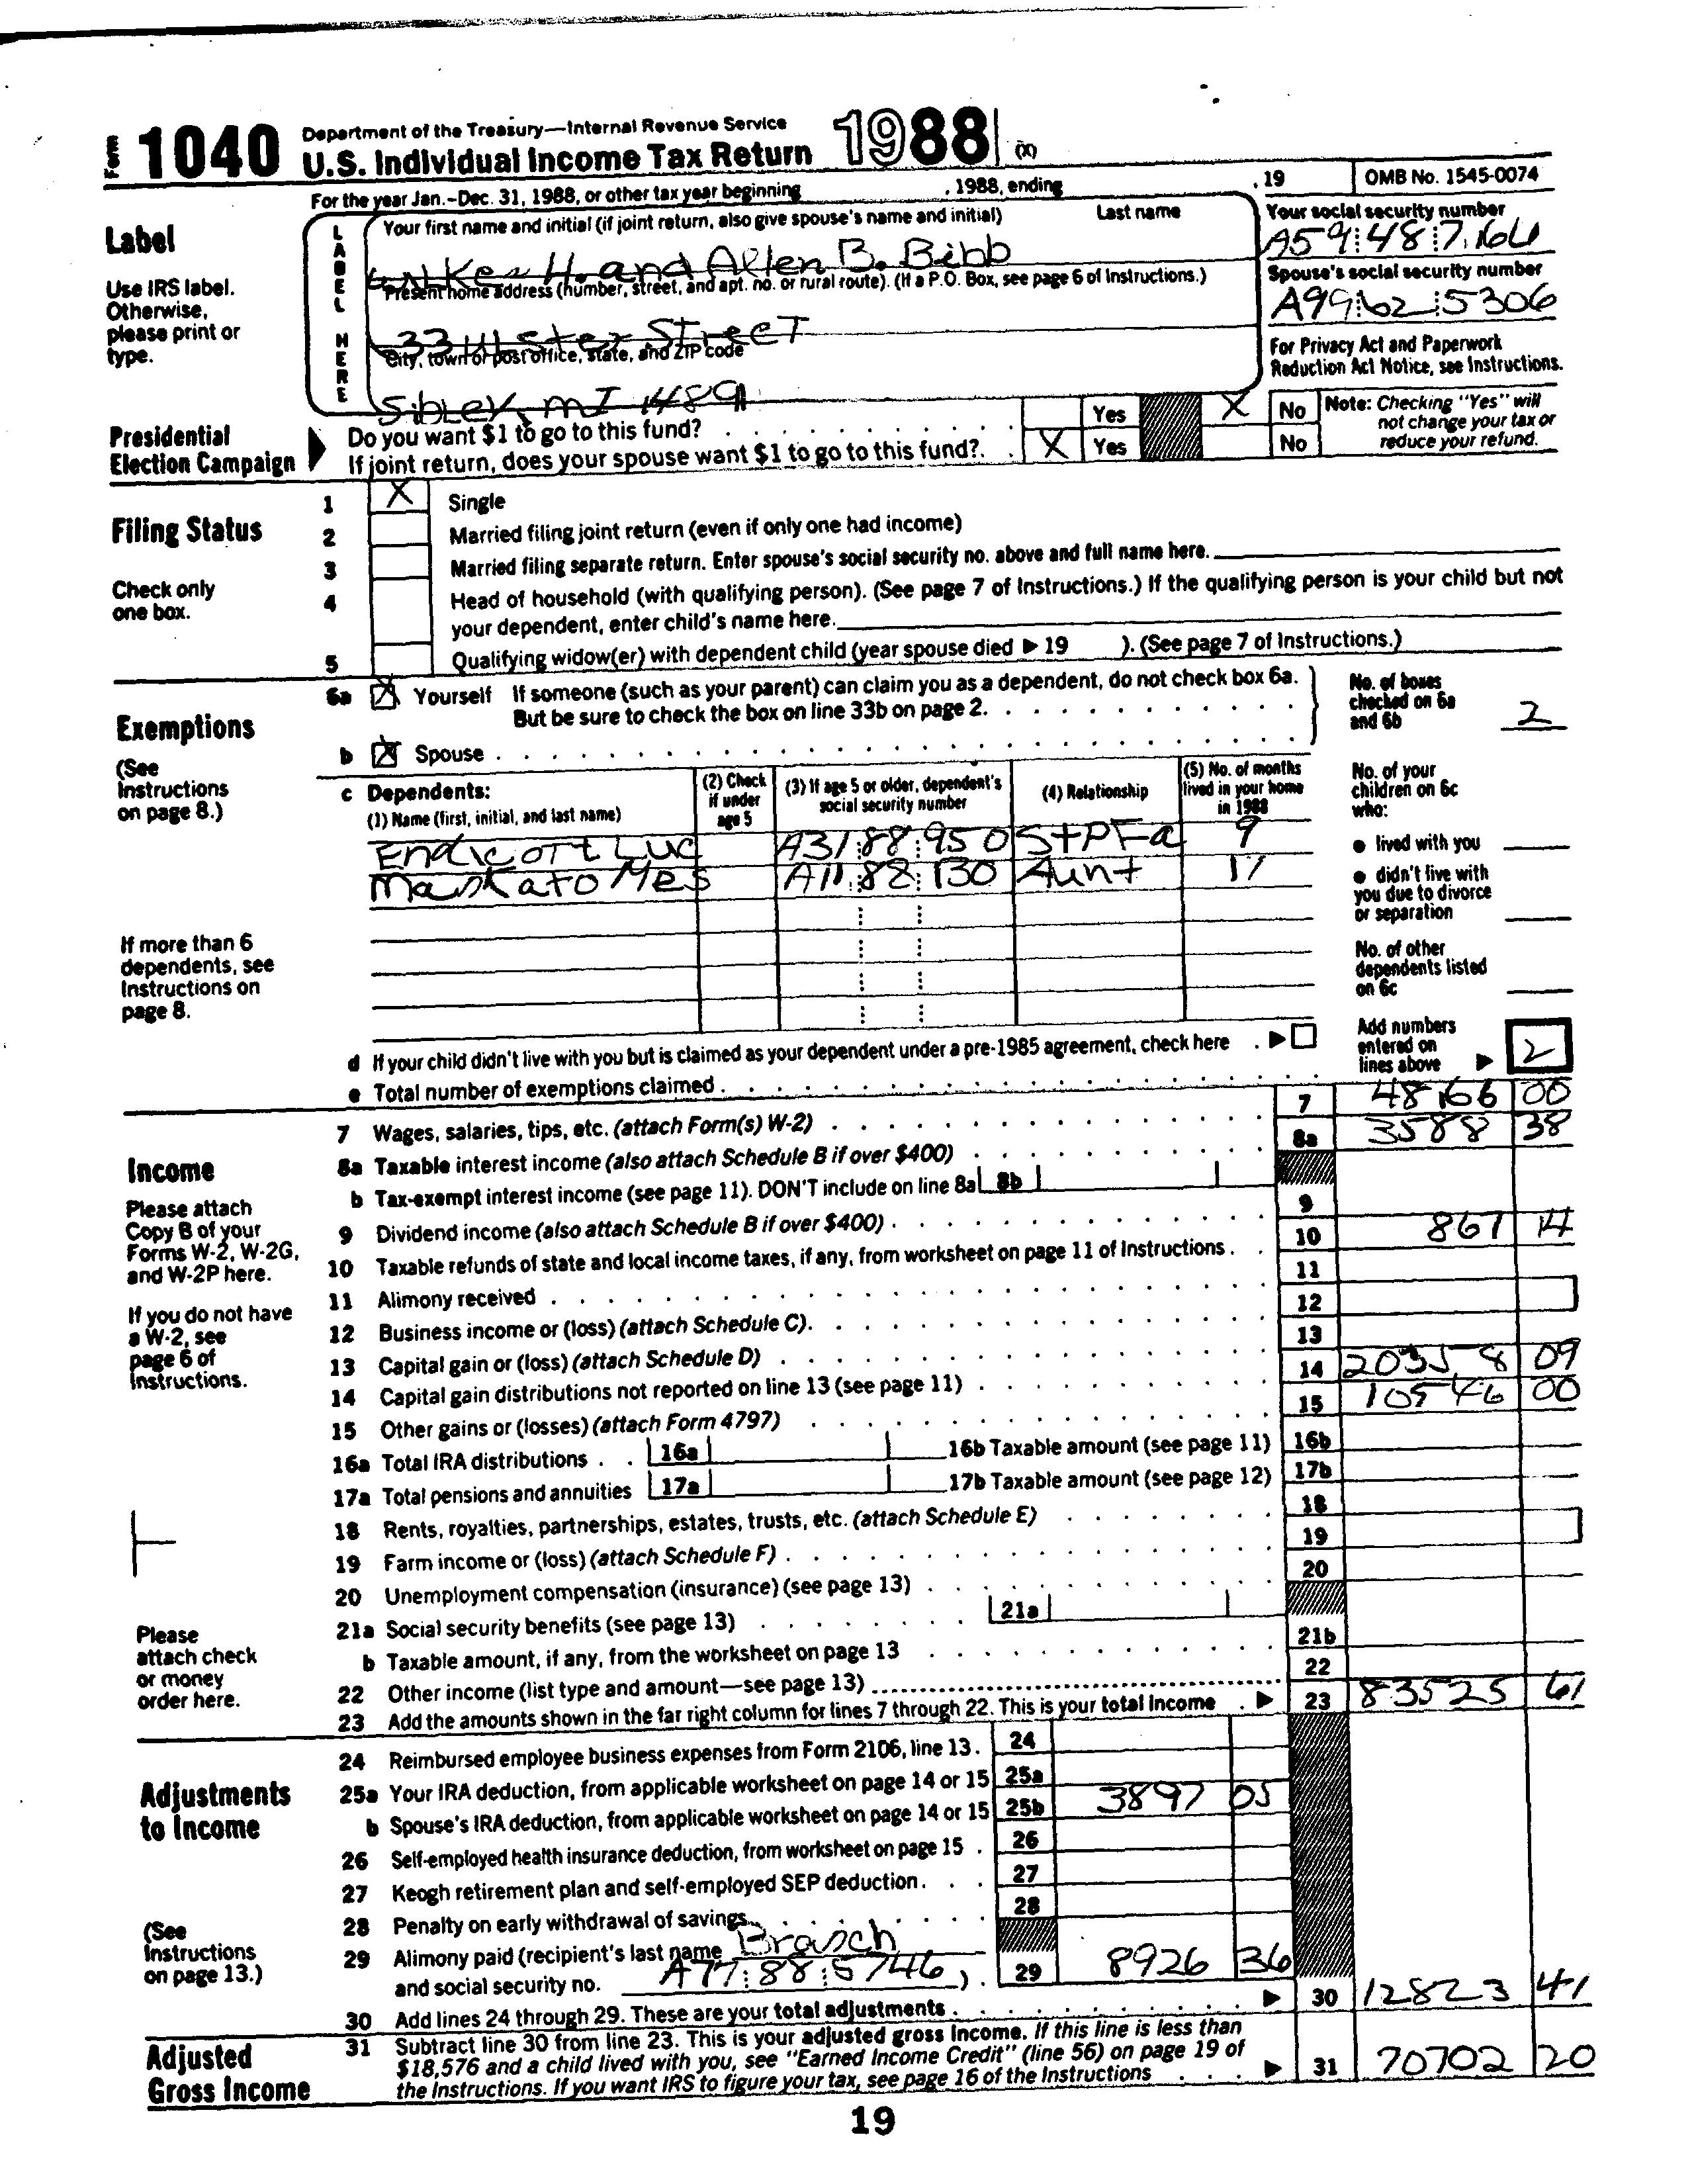 Form 1040 Department of the Treasury—Internal Revenue Service
U.S. Individual Income Tax Return 1988 (X)
For the year Jan.–Dec. 31, 1988, or other tax year beginning , 1988, ending , 19 OMB No. 1545-0074
Label
Use IRS label.
Otherwise,
please print or
type.
LABEL HERE
Your first name and initial (if joint return, also give spouse's name and initial) Last name
H. and Allen B. Bibb
Your social security number
A59 48 7164
Present home address (number, street, and apt. no. or rural route). (If a P.O. Box, see page 6 of Instructions.)
33 Ulster Street
Spouse's social security number
A99 62 5306
City, town or post office, state, and ZIP code
Sibley, MI 489
For Privacy Act and Paperwork
Reduction Act Notice, see Instructions.
Presidential
Election Campaign
Do you want $1 to go to this fund? Yes X No
If joint return, does your spouse want $1 to go to this fund? X Yes No
Note: Checking "Yes" will
not change your tax or
reduce your refund.
Filing Status
Check only
one box.
1 X Single
2 Married filing joint return (even if only one had income)
3 Married filing separate return. Enter spouse's social security no. above and full name here.
4 Head of household (with qualifying person). (See page 7 of Instructions.) If the qualifying person is your child but not
your dependent, enter child's name here.
5 Qualifying widow(er) with dependent child (year spouse died ▶ 19 ). (See page 7 of Instructions.)
Exemptions
(See
Instructions
on page 8.)
6a X Yourself If someone (such as your parent) can claim you as a dependent, do not check box 6a.
But be sure to check the box on line 33b on page 2.
b X Spouse
No. of boxes
checked on 6a
and 6b 2
c Dependents:
(1) Name (first, initial, and last name)
(2) Check
if under
age 5
(3) If age 5 or older, dependent's
social security number
(4) Relationship
(5) No. of months
lived in your home
in 1988
Endicott Luc A31 88 950 StPFa 9
Mankato Mes A11 82 130 Aunt 11
No. of your
children on 6c
who:
● lived with you
● didn't live with
you due to divorce
or separation
No. of other
dependents listed
on 6c
If more than 6
dependents, see
Instructions on
page 8.
d If your child didn't live with you but is claimed as your dependent under a pre-1985 agreement, check here ▶
e Total number of exemptions claimed
Add numbers
entered on
lines above ▶ 2
Income
Please attach
Copy B of your
Forms W-2, W-2G,
and W-2P here.
If you do not have
a W-2, see
page 6 of
Instructions.
Please
attach check
or money
order here.
7 Wages, salaries, tips, etc. (attach Form(s) W-2) 7 48166 00
8a Taxable interest income (also attach Schedule B if over $400) 8a 3588 38
b Tax-exempt interest income (see page 11). DON'T include on line 8a 8b
9 Dividend income (also attach Schedule B if over $400) 9
10 Taxable refunds of state and local income taxes, if any, from worksheet on page 11 of Instructions 10 867 14
11 Alimony received 11
12 Business income or (loss) (attach Schedule C) 12
13 Capital gain or (loss) (attach Schedule D) 13
14 Capital gain distributions not reported on line 13 (see page 11) 14 20358 09
15 Other gains or (losses) (attach Form 4797) 15 10546 00
16a Total IRA distributions 16a 16b Taxable amount (see page 11) 16b
17a Total pensions and annuities 17a 17b Taxable amount (see page 12) 17b
18 Rents, royalties, partnerships, estates, trusts, etc. (attach Schedule E) 18
19 Farm income or (loss) (attach Schedule F) 19
20 Unemployment compensation (insurance) (see page 13) 20
21a Social security benefits (see page 13) 21a
b Taxable amount, if any, from the worksheet on page 13 21b
22 Other income (list type and amount—see page 13) 22
23 Add the amounts shown in the far right column for lines 7 through 22. This is your total income ▶ 23 83525 61
Adjustments
to Income
(See
Instructions
on page 13.)
24 Reimbursed employee business expenses from Form 2106, line 13 24
25a Your IRA deduction, from applicable worksheet on page 14 or 15 25a
b Spouse's IRA deduction, from applicable worksheet on page 14 or 15 25b 3897 05
26 Self-employed health insurance deduction, from worksheet on page 15 26
27 Keogh retirement plan and self-employed SEP deduction 27
28 Penalty on early withdrawal of savings 28
29 Alimony paid (recipient's last name Brasch
and social security no. A77 88 5746 ) 29 8926 36
30 Add lines 24 through 29. These are your total adjustments ▶ 30 12823 41
Adjusted
Gross Income
31 Subtract line 30 from line 23. This is your adjusted gross income. If this line is less than
$18,576 and a child lived with you, see "Earned Income Credit" (line 56) on page 19 of
the Instructions. If you want IRS to figure your tax, see page 16 of the Instructions ▶ 31 70702 20
19